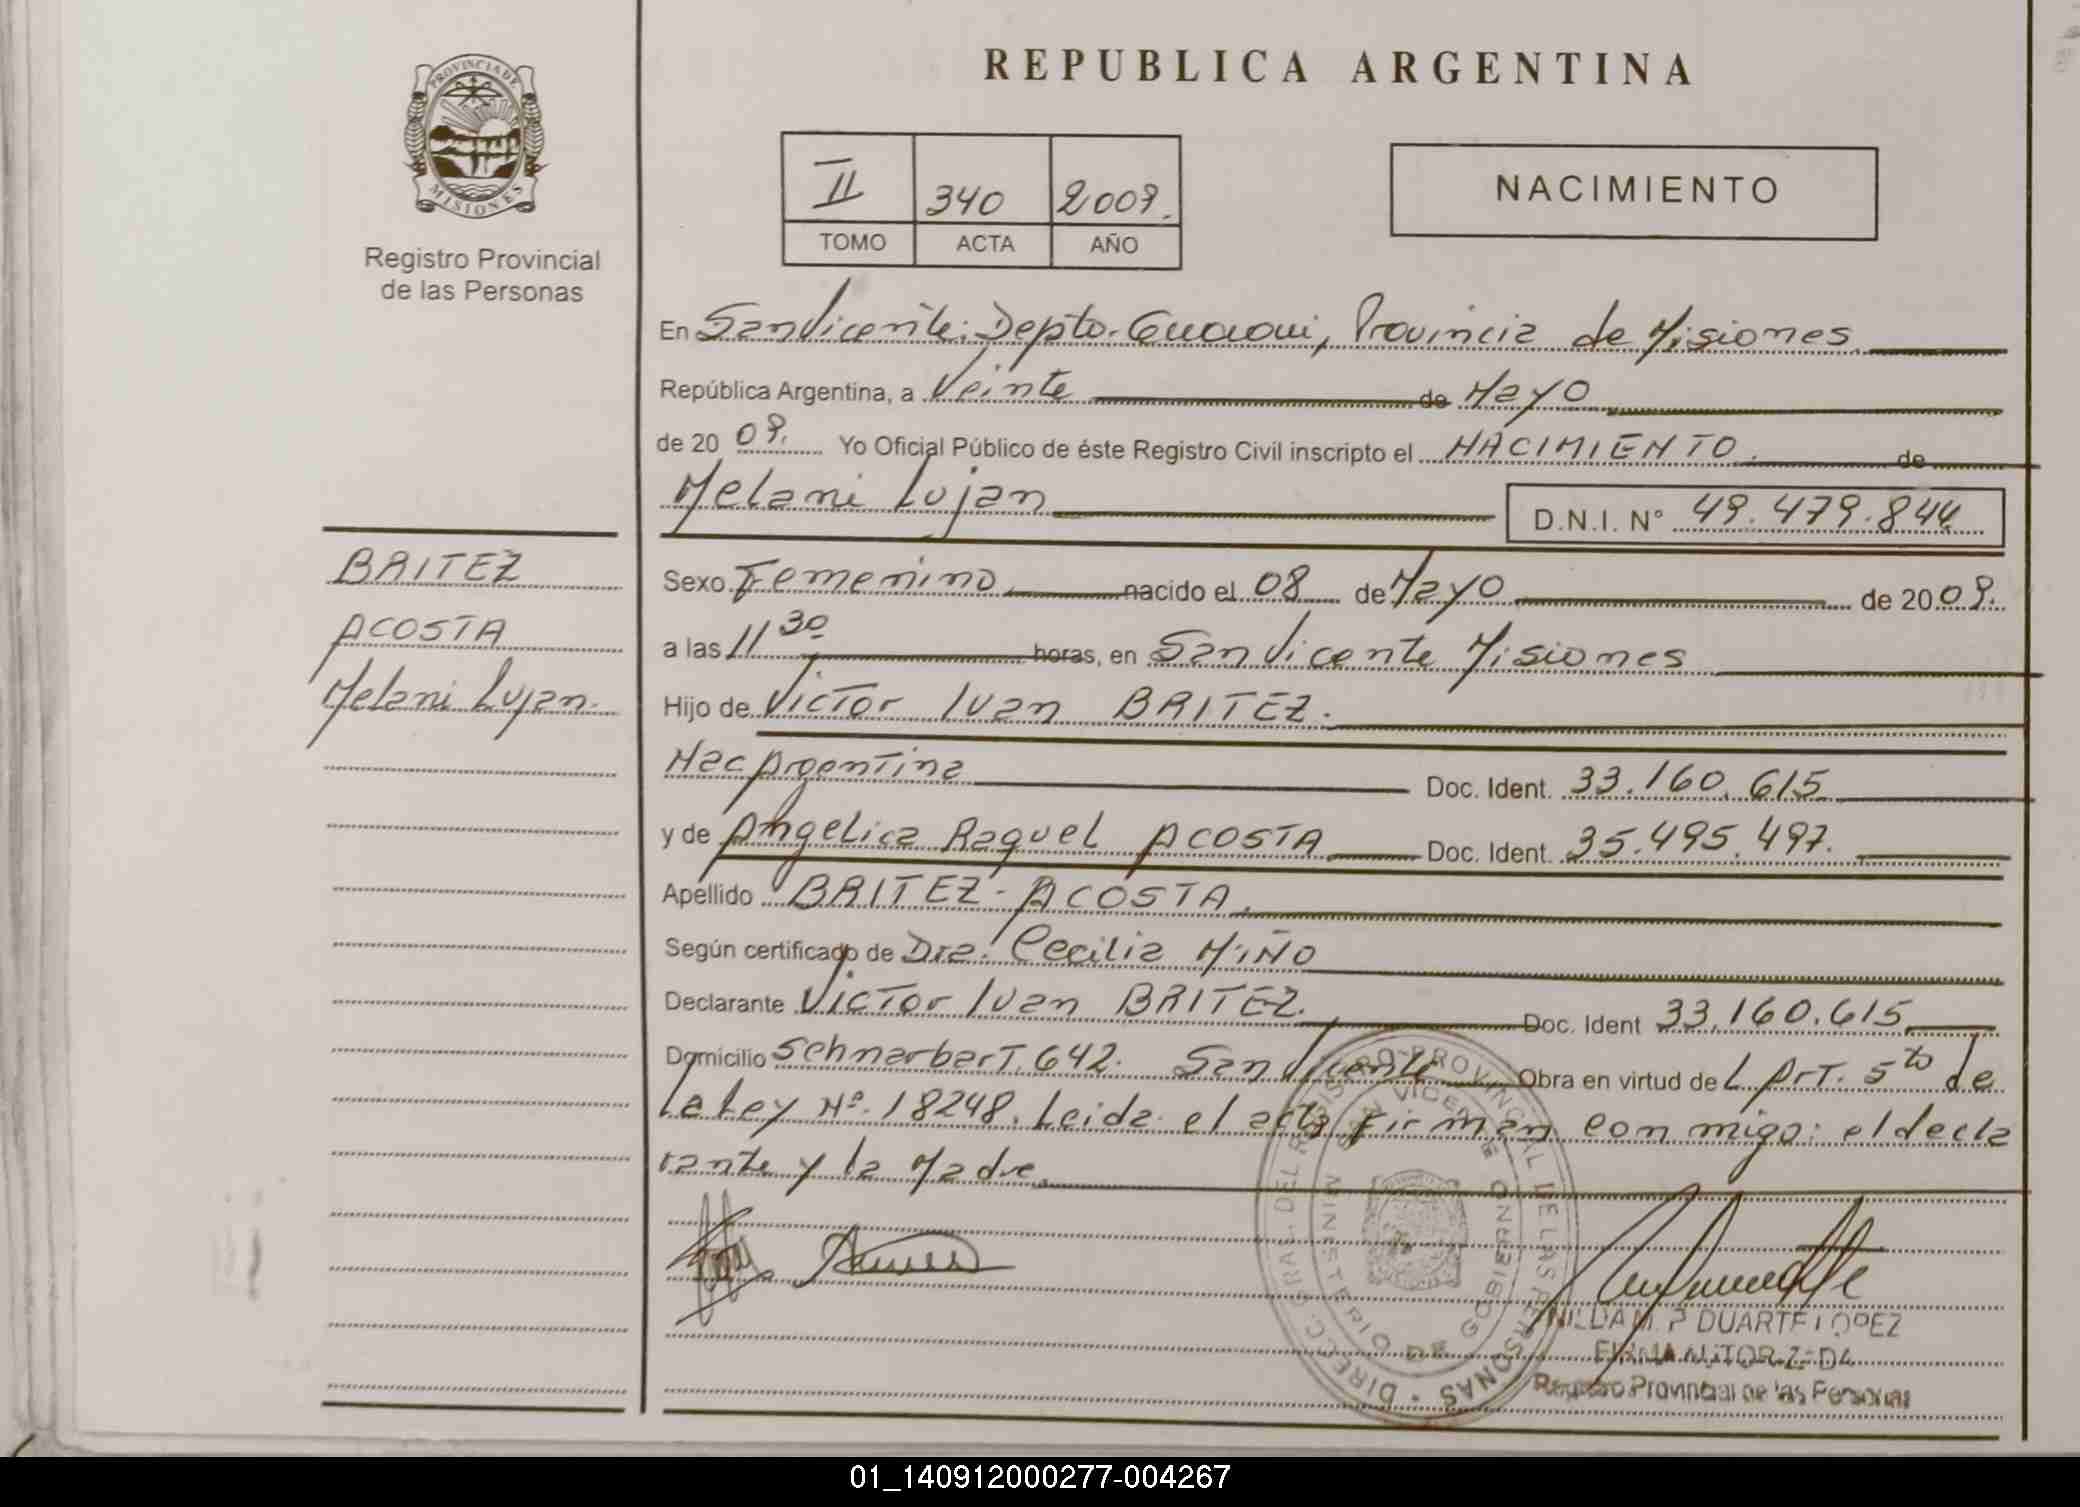 PROVINCIA DE
MISIONES
Registro Provincial
de las Personas
BRITEZ
ACOSTA
Melani Lujan.
REPUBLICA ARGENTINA
II 340 2009.
TOMO ACTA AÑO
NACIMIENTO
En San Vicente: Depto. Guarani, Provincia de Misiones
República Argentina, a Veinte de Mayo
de 20 09. Yo Oficial Público de éste Registro Civil inscripto el NACIMIENTO. de
Melani Lujan
D.N.I. N° 49.479.844
Sexo Femenino nacido el 08 de Mayo de 20 09.
a las 11 30 horas, en San Vicente Misiones
Hijo de Victor Ivan BRITEZ.
Nac Argentina Doc. Ident. 33.160.615
y de Angelica Raquel ACOSTA Doc. Ident. 35.495.497.
Apellido BRITEZ-ACOSTA.
Según certificado de Dra. Cecilia MIÑO
Declarante Victor Ivan BRITEZ. Doc. Ident 33.160.615
Domicilio Schnarbart. 642. San Vicente Obra en virtud de L Art. 5to de
la Ley Nº. 18248. Leida el acta firman con migo: el decla
rante y la Madre.
DIRECC. GRAL. DEL REGISTRO PROVINCIAL DE LAS PERSONAS
SAN VICENTE
MINISTERIO DE GOBIERNO
NILDA M. P DUARTE LOPEZ
FIRMA AUTORIZADA
Registro Provincial de las Personas
01_140912000277-004267